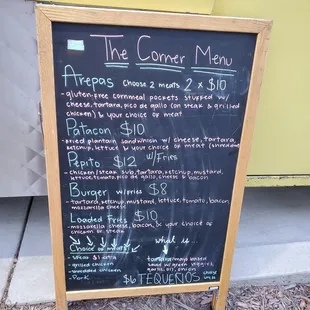 The Corner Menu
Arepas choose 2 meats 2 x $10
- gluten-free cornmeal pockets stuffed w/
cheese, tartara, pico de gallo (on steak & grilled
chicken) & your choice of meat
Patacon $10
- fried plantain sandwhich w/ cheese, tartara,
ketchup, lettuce & your choice of meat (shredded
Pepito $12 w/Fries
- chicken/steak sub, tartara, ketchup, mustard,
lettuce, tomato, pico de gallo, cheese & bacon
Burger w/fries $8
- tartara, ketchup, mustard, lettuce, tomato, bacon,
mozzarella cheese
Loaded Fries $10
- mozzarella cheese, bacon, & your choice of
chicken or steak
Choice of meats
what is
- steak $1 extra
- grilled chicken
- shredded chicken
- Pork
tartara mayo based
sauce w/ green veggies,
garlic, oil, onions
$6 TEQUEÑOS